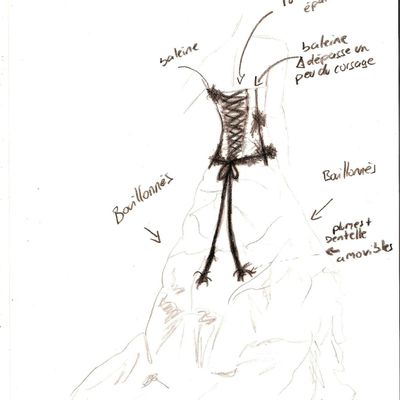 baleine
baleine
Δ dépasse un
peu du corsage
Bouillonnés
Bouillonnés
plumes +
dentelle
amovibles